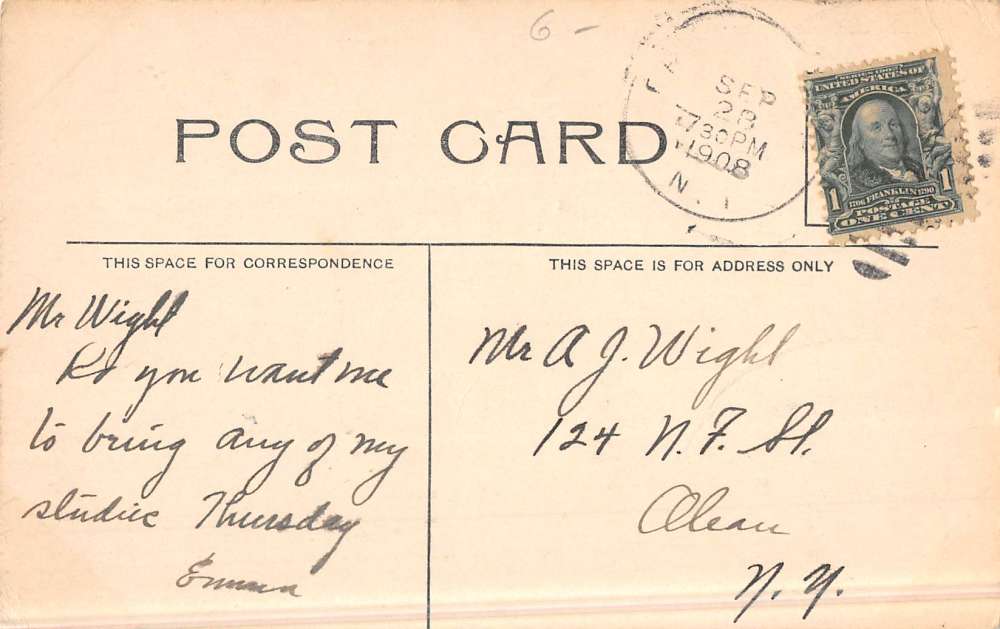 6-
SEP
28
730PM
1908
N.
SERIES 1902
UNITED STATES OF
AMERICA
1706 FRANKLIN 1790
POSTAGE
1 ONE CENT 1
POST CARD
THIS SPACE FOR CORRESPONDENCE
Mr Wight
Do you want me
to bring any of my
studies Thursday
Emma
THIS SPACE IS FOR ADDRESS ONLY
Mr A J. Wight
124 N. F. St.
Olean
N. Y.